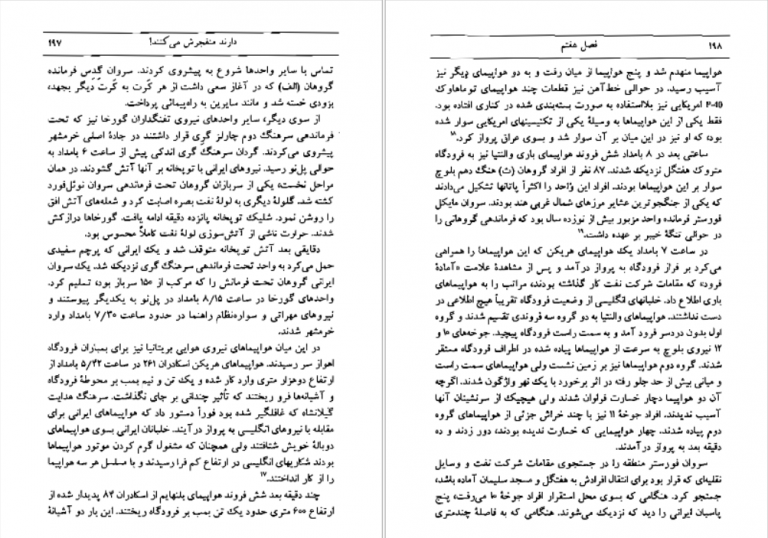 دارند منفجرش می‌کنند! ۱۹۷
تماس با سایر واحدها شروع به پیشروی کردند. سروان گدس فرمانده
گروهان (الف) که در آغاز سعی داشت از هر کُرت به کُرت دیگر بجهد،
بزودی خسته شد و مانند سایرین به راه‌پیمائی پرداخت.
از سوی دیگر، سایر واحدهای نیروی تفنگداران گورخا نیز که تحت
فرماندهی سرهنگ دوم چارلز گری قرار داشتند در جادۀ اصلی خرمشهر
پیشروی می‌کردند. گردان سرهنگ گری اندکی پیش از ساعت ۶ بامداد به
حوالی پل‌نو رسید. نیروهای ایرانی با توپخانه بر آنها آتش گشودند. در همان
مراحل نخست، یکی از سربازان گروهان تحت فرماندهی سروان نوئل‌فورد
کشته شد. گلولۀ دیگری به لولۀ نفت بصره اصابت کرد و شعله‌های آتش افق
را روشن نمود. شلیک توپخانه پانزده دقیقه ادامه یافت. گورخاها درازکش
شدند. حرارت ناشی از آتش‌سوزی لولۀ نفت کاملاً محسوس بود.
دقایقی بعد آتش توپخانه متوقف شد و یک ایرانی که پرچم سفیدی
حمل می‌کرد به واحد تحت فرماندهی سرهنگ گری نزدیک شد. یک سروان
ایرانی گروهان تحت فرمانش را که مرکب از ۱۵۰ سرباز بود، تسلیم کرد.
واحدهای گورخا در ساعت ۸/۱۵ بامداد در پل‌نو به یکدیگر پیوستند و
نیروهای مهراتی و سواره‌نظام راهنما در حدود ساعت ۷/۳۰ بامداد وارد
خرمشهر شدند.
در این میان هواپیماهای نیروی هوایی بریتانیا نیز برای بمباران فرودگاه
اهواز سر رسیدند. هواپیماهای هریکن اسکادران ۲۶۱ در ساعت ۵/۴۲ بامداد از
ارتفاع دوهزار متری وارد کار شده و یک تن و نیم بمب بر محوطۀ فرودگاه
و آشیانه‌ها فرو ریختند که تأثیر چندانی بر جای نگذاشت. سرهنگ هدایت
گیلانشاه که غافلگیر شده بود فوراً دستور داد که هواپیماهای ایرانی برای
مقابله با نیروهای انگلیسی به پرواز درآیند. خلبانان ایرانی بسوی هواپیماهای
دوبالۀ خویش شتافتند ولی همچنان که مشغول گرم کردن موتور هواپیماها
بودند شکاریهای انگلیسی در ارتفاع کم فرا رسیدند و با مسلسل هر سه هواپیما
را از کار انداختند.۱۷
چند دقیقه بعد شش فروند هواپیمای بلنهایم از اسکادران ۸۴ پدیدار شده از
ارتفاع ۶۰۰ متری حدود یک تن بمب بر فرودگاه ریختند. این بار دو آشیانۀ
۱۹۸ فصل هفتم
هواپیما منهدم شد و پنج هواپیما از میان رفت و به دو هواپیمای دیگر نیز
آسیب رسید. در حوالی خط‌آهن نیز قطعات چند هواپیمای توماهاوک
P-40 امریکایی نیز بلااستفاده به صورت بسته‌بندی شده در کناری افتاده بود.
فقط یکی از این هواپیماها به وسیلۀ یکی از تکنیسینهای امریکایی سوار شده
بود، که او نیز در این میان بر آن سوار شد و بسوی عراق پرواز کرد.۱۸
ساعتی بعد در ۸ بامداد شش فروند هواپیمای باری والنتیا نیز به فرودگاه
متروک هفتگل نزدیک شدند. ۸۷ نفر از افراد گروهان (ت) هنگ دهم بلوچ
سوار بر این هواپیماها بودند. افراد این واحد را اکثراً پاتانها تشکیل می‌دادند
که یکی از جنگجوترین عشایر مرزهای شمال غربی هند بودند. سروان مایکل
فورستر فرمانده واحد مزبور بیش از نوزده سال بود که فرماندهی گروهانی را
در حوالی تنگۀ خیبر بر عهده داشت.۱۹
در ساعت ۷ بامداد یک هواپیمای هریکن که این هواپیماها را همراهی
می‌کرد بر فراز فرودگاه به پرواز درآمد و پس از مشاهدۀ علامت «آمادۀ
فرود» که مقامات شرکت نفت کار گذاشته بودند، مراتب را به هواپیماهای
باری اطلاع داد. خلبانهای انگلیسی از وضعیت فرودگاه تقریباً هیچ اطلاعی در
دست نداشتند. هواپیماهای والنتیا به دو گروه سه فروندی تقسیم شدند و گروه
اول بدون دردسر فرود آمد و به سمت راست فرودگاه پیچید. جوخه‌های ۱۰ و
۱۲ نیروی بلوچ به سرعت از هواپیماها پیاده شده در اطراف فرودگاه مستقر
شدند. گروه دوم هواپیماها نیز بر زمین نشست ولی هواپیماهای سمت راست
و میانی بیش از حد جلو رفته در اثر برخورد با یک نهر واژگون شدند. اگرچه
آن دو هواپیما دچار خسارت فراوان شدند ولی هیچیک از سرنشینان آنها
آسیب ندیدند. افراد جوخۀ ۱۱ نیز با چند خراش جزئی از هواپیماهای گروه
دوم پیاده شدند. چهار هواپیمایی که خسارت ندیده بودند، دور زدند و ده
دقیقه بعد به پرواز درآمدند.
سروان فورستر منطقه را در جستجوی مقامات شرکت نفت و وسایل
نقلیه‌ای که قرار بود برای انتقال افرادش به هفتگل و مسجد سلیمان آماده باشد،
جستجو کرد. هنگامی که بسوی محل استقرار افراد جوخۀ ۱۰ می‌رفت، پنج
پاسبان ایرانی را دید که نزدیک می‌شوند. هنگامی که به فاصلۀ چندمتری